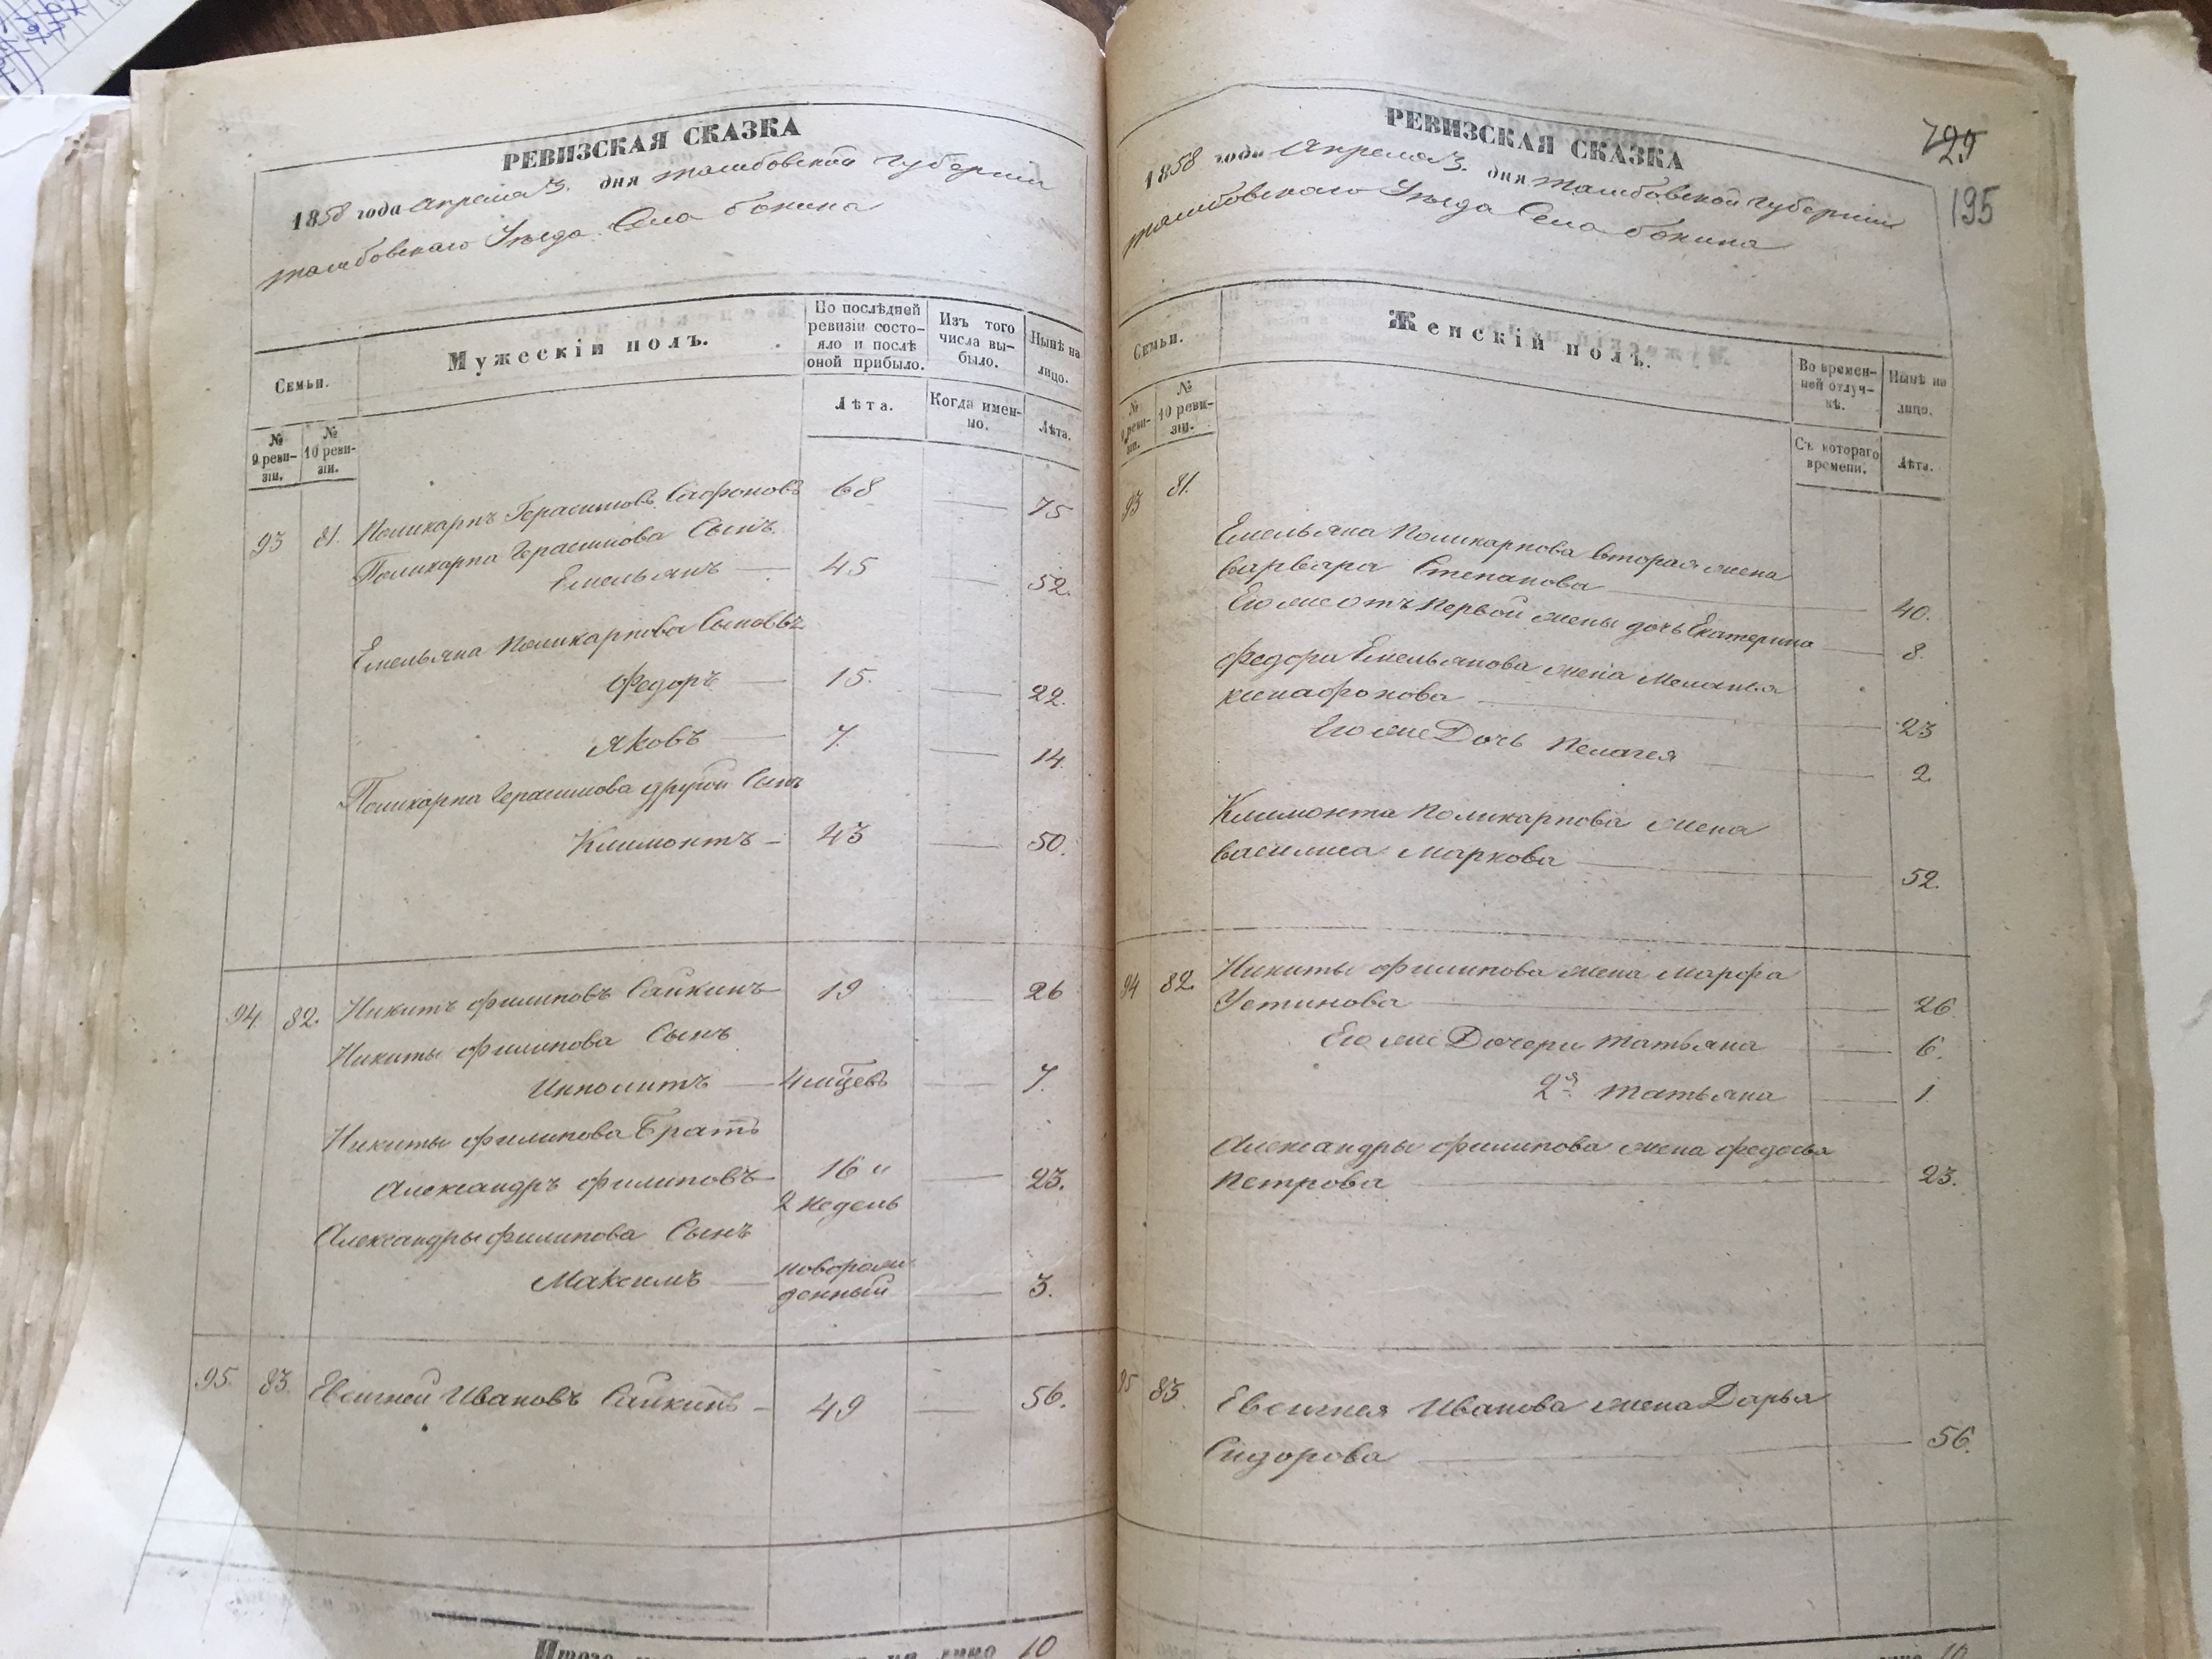 РЕВИЗСКАЯ СКАЗКА
1858 года Апреля 3. дня Тамбовской Губернии
Тамбовскаго Уѣзда Села Бокина
Семьи.
Мужескій полъ.
По послѣдней ревизіи состояло и послѣ оной прибыло.
Изъ того числа выбыло.
Нынѣ на лицо.
№ 9 ревизіи.
№ 10 ревизіи.
Лѣта.
Когда именно.
Лѣта.
93 81. Поликарпъ Герасимовъ Сафоновъ 68 — 75
Поликарпа Герасимова Сынъ
Емельянъ — 45 — 52.
Емельяна Поликарпова Сыновья
Федоръ — 15. — 22.
Яковъ — 7. — 14.
Поликарпа Герасимова другой Сынъ
Климонтъ — 43 — 50.
94. 82. Никитъ Филиповъ Сайкинъ 19 — 26
Никиты Филипова Сынъ
Ипполитъ — 4 мцевъ — 7.
Никиты Филипова Братъ
Александръ Филиповъ 16 и — 23.
2 недель
Александры Филипова Сынъ
Максимъ — новорож
денный — 3.
95. 83. Евсигней Ивановъ Сайкинъ — 49 — 56.
Итого на лицо 10
РЕВИЗСКАЯ СКАЗКА
729
195
1858 года Апреля 3. дня Тамбовской Губернии
Тамбовскаго Уѣзда Села Бокина
Семьи.
Женскій полъ.
Во временней отлучкѣ.
Нынѣ на лицо.
№ 9 ревизіи.
№ 10 ревизіи.
Съ котораго времени.
Лѣта.
93 81.
Емельяна Поликарпова вторая жена
Варвара Степанова — 40.
Его же отъ первой жены дочь Екатерина — 8.
Федора Емельянова жена Меланья
Ксинафонова — 23
Его же Дочь Пелагея — 2.
Климонта Поликарпова жена
Василиса Маркова — 52.
94 82. Никиты Филипова жена Марфа
Устинова — 26.
Его же Дочери Татьяна — 6.
2я Татьяна — 1.
Александры Филипова жена Федосья
Петрова — 23.
95 83. Евсигнея Иванова жена Дарья
Сидорова — 56.
10